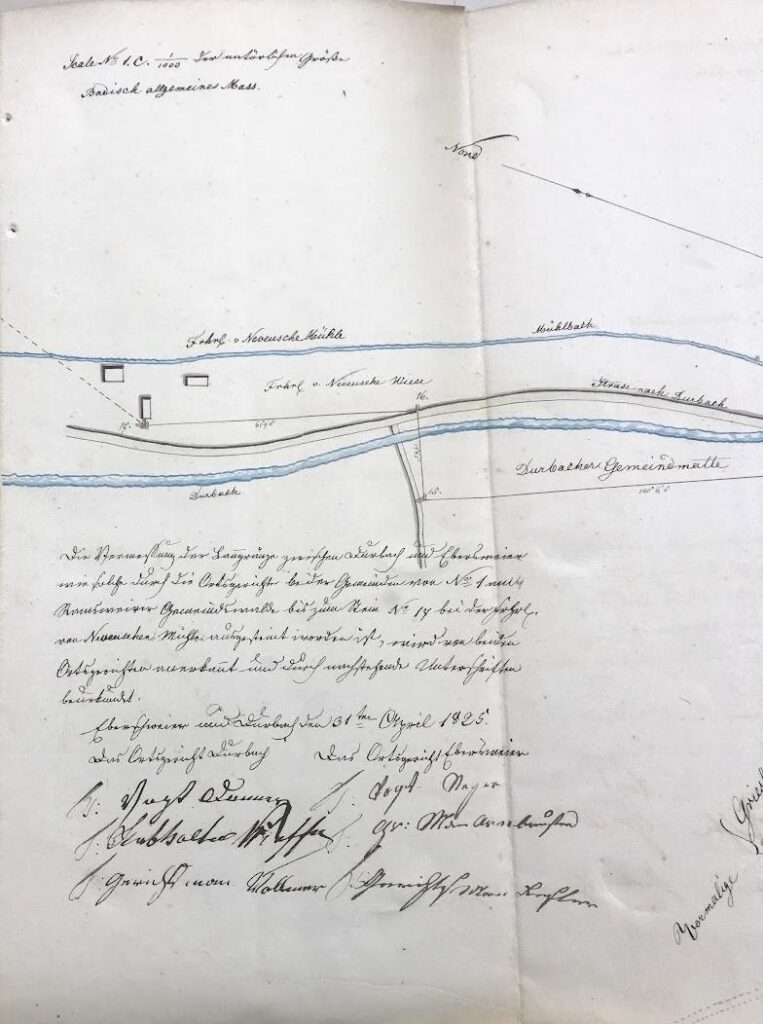 Scale No 1.C. 1/1000 der natürlichen Größe
Badisch allgemeines Mass.
Nord
Frhrl. v Neveusche Mühle
Mühlbach
Frhrl v Neveusche Wiese
Strase nach Durbach
16.
17.
Durbach
Durbacher Gemeindmatte
15.
Die Vermessung der Banngränze zwischen Durbach und Ebersweier
wie solche durch die Ortsgerichte beider Gemeinden von No 1 am
Gemeindswalde bis zum Stein No 17 bei der Frhrl.
von Neveuschen Mühle ausgesteint worden ist, wird von beiden
Ortsgerichten anerkannt und durch nachstehende Unterschriften
beurkundet.
Ebersweier und Durbach den 31ten April 1825.
Das Ortsgericht Durbach Das Ortsgericht Ebersweier
Vogt Danner Vogt
Stabhalter
Gerichtsman Vollmer Gerichtsman
Vormalige